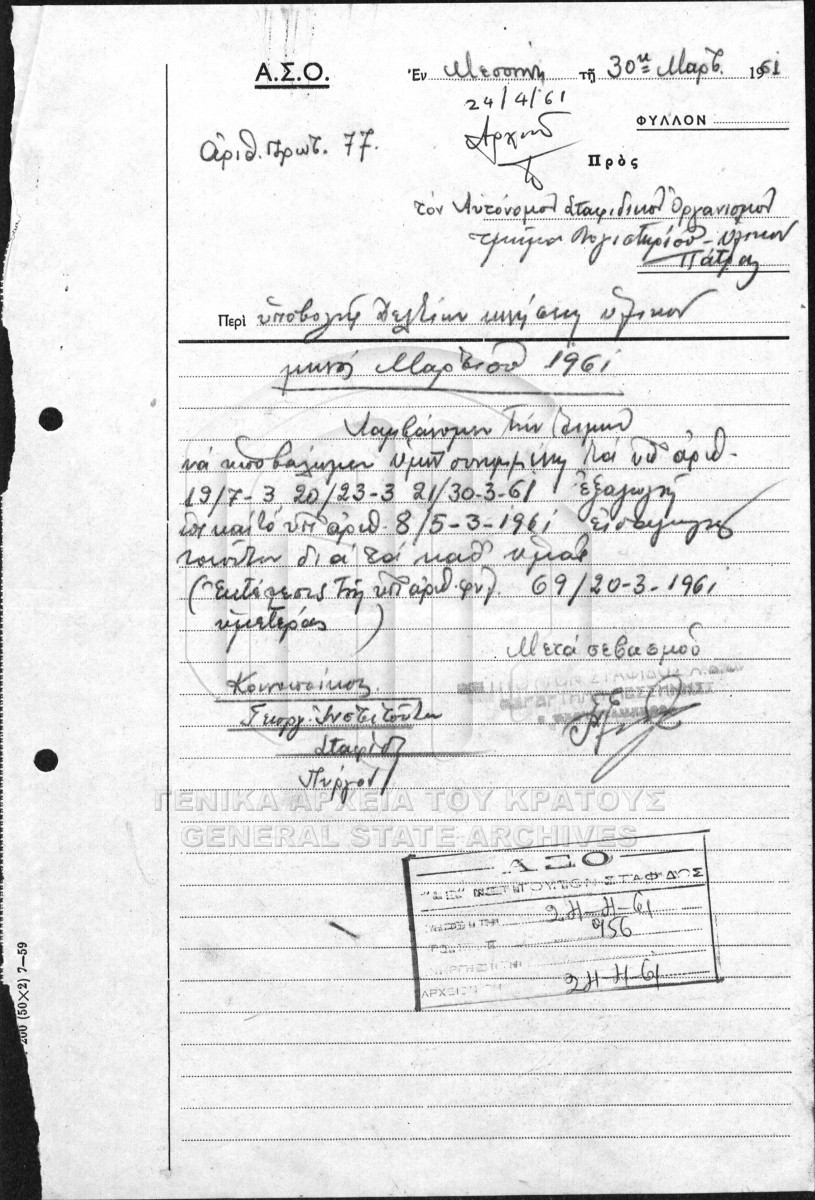 Α.Σ.Ο.
Ἐν Μεσσήνῃ τῇ 30η Μαρτ. 1961
24/4/61
Ἀρχεῖον
ΦΥΛΛΟΝ
ἀριθ. Πρωτ. 77.
Πρὸς
τὸν Αὐτόνομον Σταφιδικὸν Ὀργανισμὸν
τμῆμα Λογιστηρίου - ὑλικοῦ
Πάτρας
Περὶ ὑποβολῆς Δελτίων κινήσεως ὑλικοῦ
μηνὸς Μαρτίου 1961
Λαμβάνομεν τὴν τιμὴν
νὰ ὑποβάλωμεν ὑμῖν συνημμένως τὰ ὑπ' ἀριθ.
19/7-3 20/23-3 21/30-3-61 ἐξαγωγῆς
καὶ τὸ ὑπ' ἀριθ. 8/5-3-1961 εἰσαγωγῆς
τοιοῦτον διὰ τὰ καθ' ὑμᾶς
(Ἐκτέλεσις τῆς ὑπ' ἀριθ. φυλ. 69/20-3-1961
ὑμετέρας)
Μετὰ σεβασμοῦ
Κοινοποίησις
Γεωργ. Ἰνστιτοῦτον
Σταφίδος
Πύργον
ΓΕΝΙΚΑ ΑΡΧΕΙΑ ΤΟΥ ΚΡΑΤΟΥΣ
GENERAL STATE ARCHIVES
ΑΣΟ
ΣΤΑΦΙΔΟΣ
24-4-61
956
24-4-61
200 (50×2) 7-59